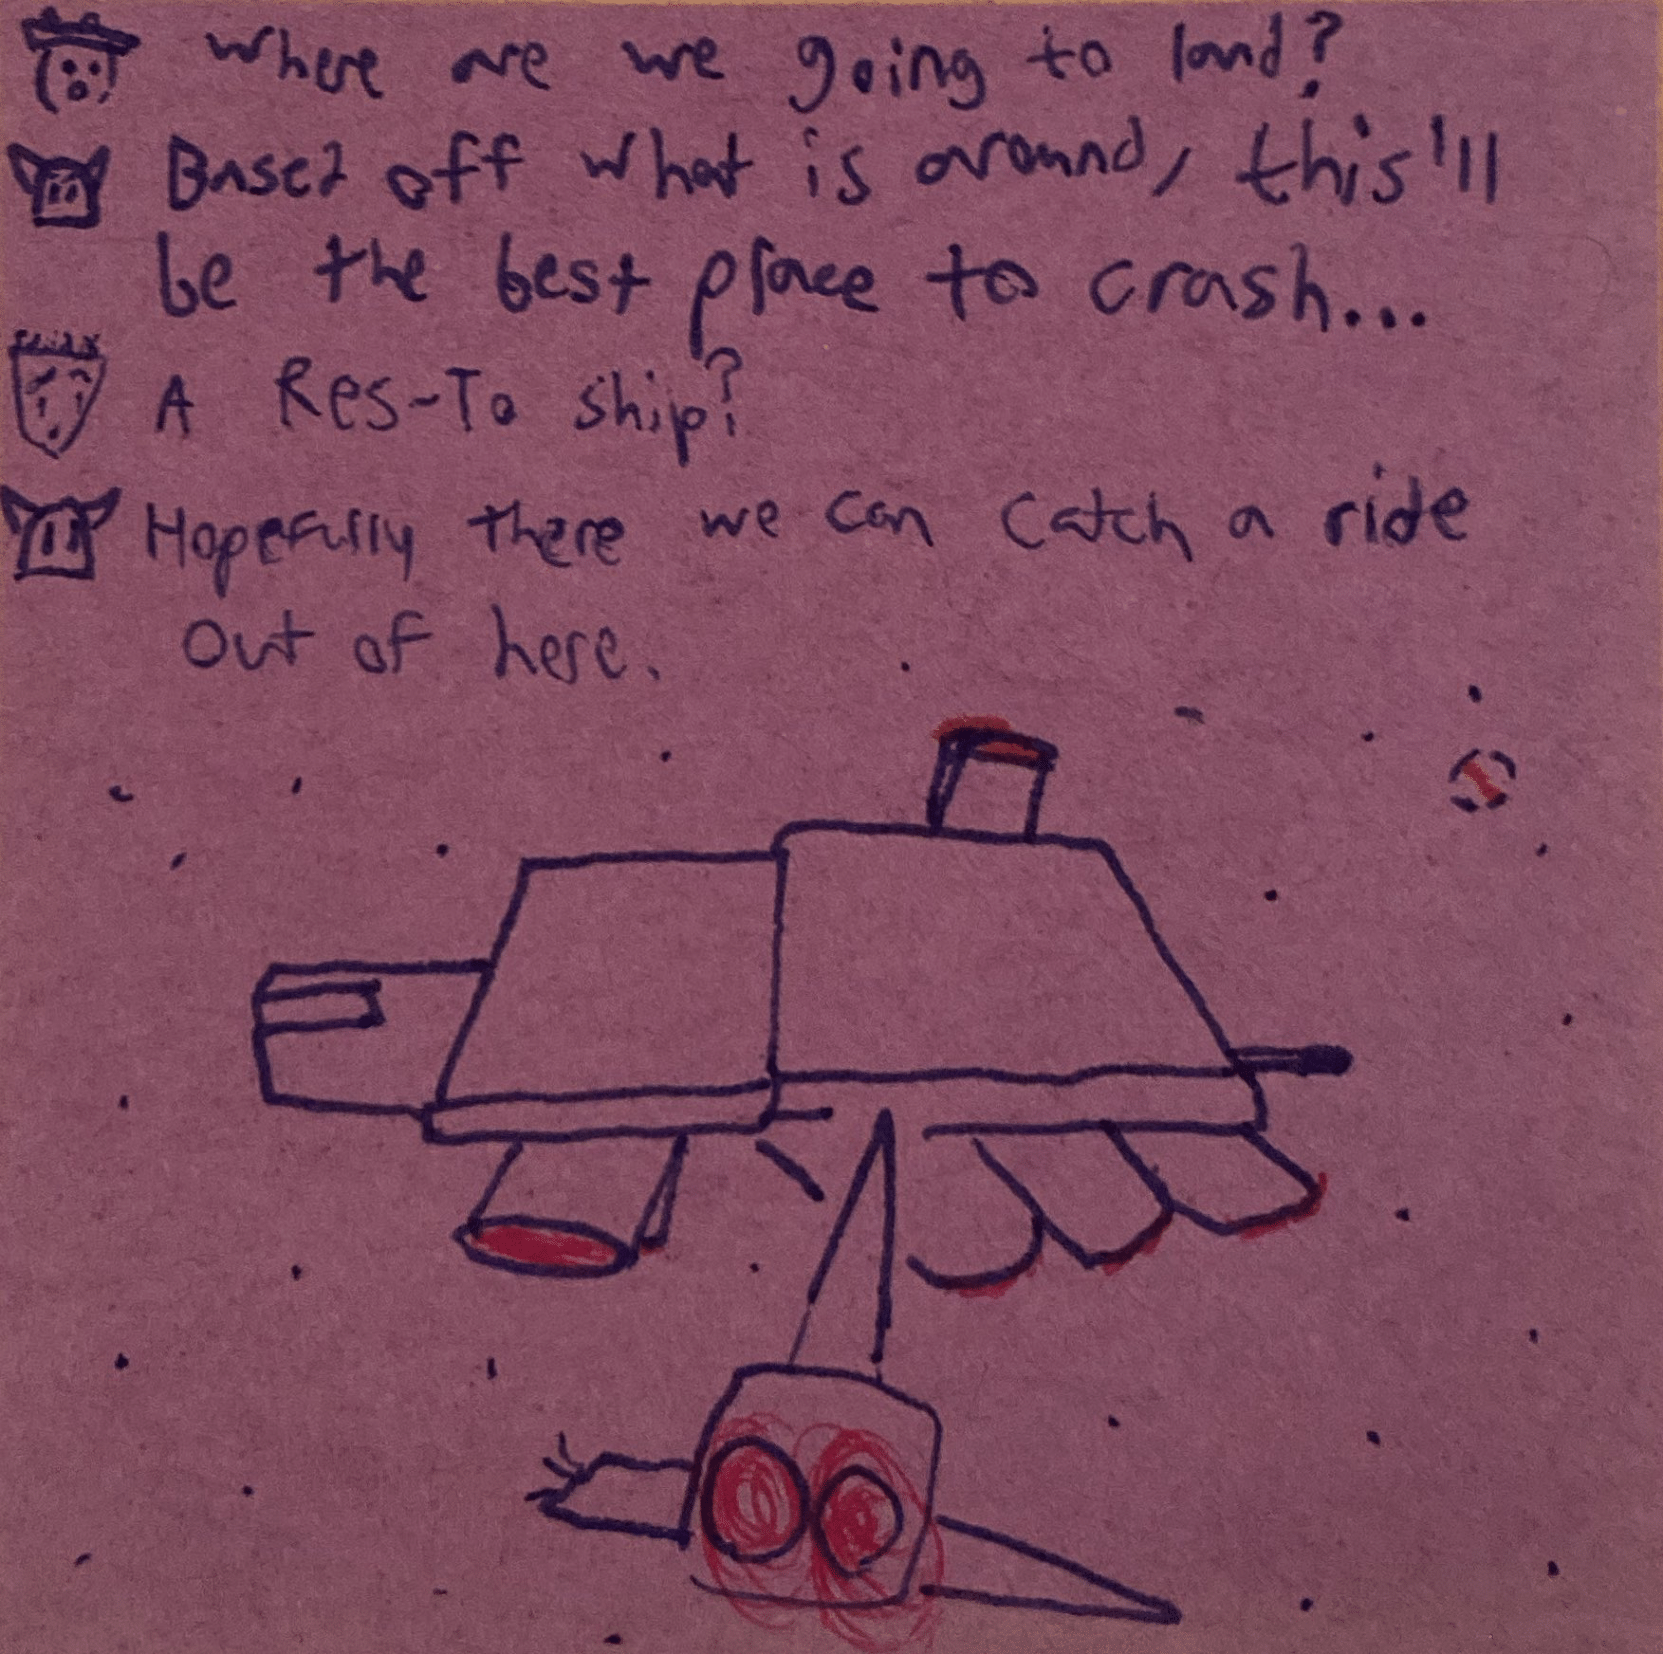 Where are we going to land?
Based off what is around, this'll
be the best place to crash...
A Res-To ship?
Hopefully there we can catch a ride
out of here.